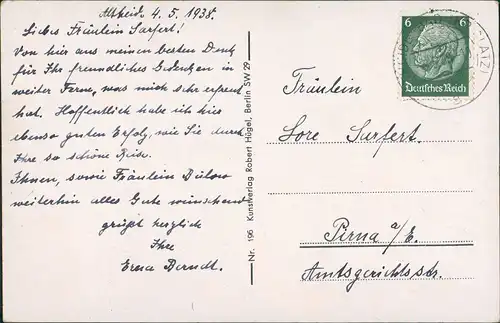 Altheide, 4. 5. 1938.
Liebes Fräulein Sarfert!
Von hier aus meinen besten Dank
für Ihr freundliches Gedenken in
weiter Ferne, was mich sehr erfreut
hat. Hoffentlich habe ich hier
ebenso guten Erfolg, wie Sie durch
Ihre so schöne Reise.
Ihnen, sowie Fräulein Bülow
weiterhin alles Gute wünschend
grüßt herzlich
Ihre
Erna Berndt.
Nr. 196 Kunstverlag Robert Hügel, Berlin SW 29
6 6
Deutsches Reich
Fräulein
Lore Sarfert.
Pirna a/E.
Amtsgerichtsstr.